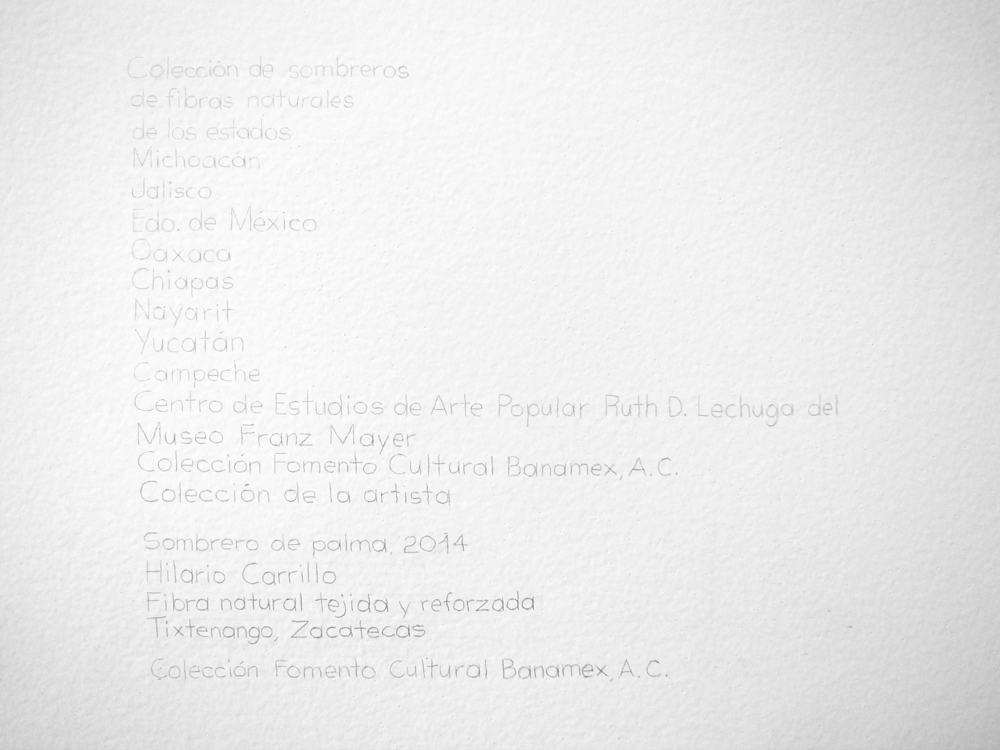 Colección de sombreros
de fibras naturales
de los estados
Michoacán
Jalisco
Edo. de México
Oaxaca
Chiapas
Nayarit
Yucatán
Campeche
Centro de Estudios de Arte Popular Ruth D. Lechuga del
Museo Franz Mayer
Colección Fomento Cultural Banamex, A.C.
Colección de la artista
Sombrero de palma, 2014
Hilario Carrillo
Fibra natural tejida y reforzada
Tixtenango, Zacatecas
Colección Fomento Cultural Banamex, A.C.